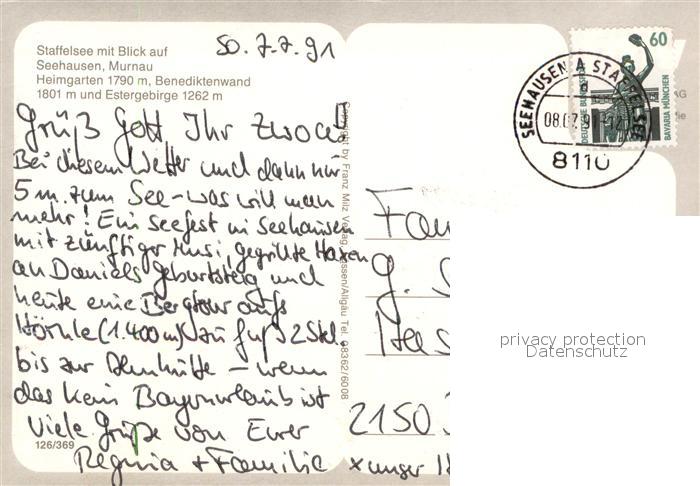 Staffelsee mit Blick auf
Seehausen, Murnau
Heimgarten 1790 m, Benediktenwand
1801 m und Estergebirge 1262 m
So. 7.7.91
Grüß Gott Ihr Zwoa!
Bei diesem Wetter und dann nur
5 m. zum See - was will man
mehr! Ein Seefest in Seehausen
mit zünftiger Musi, gegrillte Haxen
an Daniels Geburtstag und
heute eine Bergtour aufs
Hörnle (1.400 m) zu Fuß 2 Std.
bis zur Almhütte - wenn
das kein Bayernurlaub ist
Viele Grüße von Eurer
Regina + Familie
126/369
Copyright by Franz Milz Verlag, Füssen/Allgäu Tel. 08362/6008
60
DEUTSCHE BUNDESPOST
BAVARIA MÜNCHEN
SEEHAUSEN A STAFFELSEE
08.07.91
8110
Fam
G.
2150
x unser
privacy protection
Datenschutz